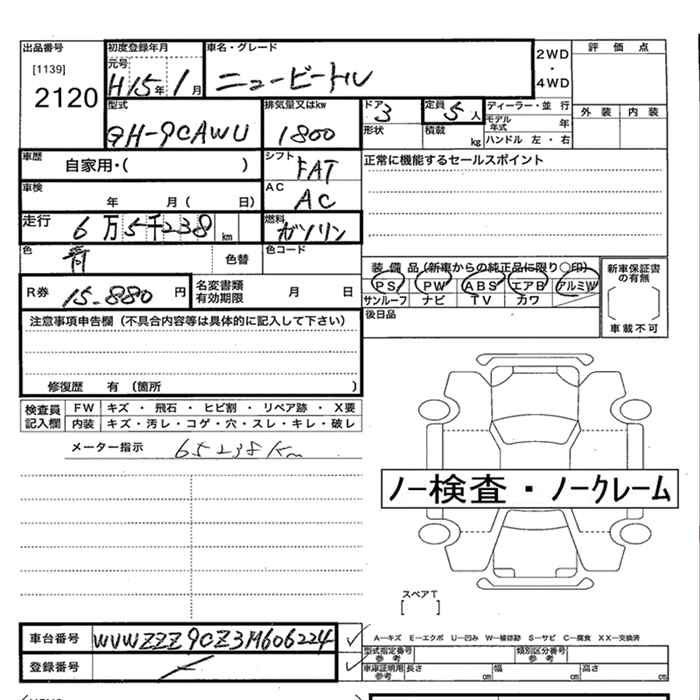 出品番号 初度登録年月 車名・グレード 2WD・4WD 評価点
[1139] 元号 H15年1月 ニュービートル
2120 外装 内装
型式 GH-9CAWU 排気量又はkw 1800 ドア 3 定員 5人 ディーラー・並行
形状 積載 kg モデル年式 年
ハンドル 左・右
車歴 自家用・( ) シフト FAT 正常に機能するセールスポイント
車検 年 月( 日) AC AC
走行 6万5千238km 燃料 ガソリン
色 青 色替 色コード
装備品(新車からの純正品に限り○印) 新車保証書の有無
PS PW ABS エアB アルミW
サンルーフ ナビ TV カワ
R券 15-880円 名変書類有効期限 月 日 後日品 車載不可
注意事項申告欄(不具合内容等は具体的に記入して下さい)
修復歴 有(箇所 )
検査員記入欄 FW キズ・飛石・ヒビ割・リペア跡・X要
内装 キズ・汚レ・コゲ・穴・スレ・キレ・破レ
メーター指示 65238Km
ノー検査・ノークレーム
スペアT
[ ]
車台番号 WVWZZZ9CZ3M606224
A-キズ E-エクボ U-凹み W-補修跡 S-サビ C-腐食 XX-交換済
登録番号
型式指定番号参考 類別区分番号参考
車庫証明用参考 長さ cm 幅 cm 高さ cm